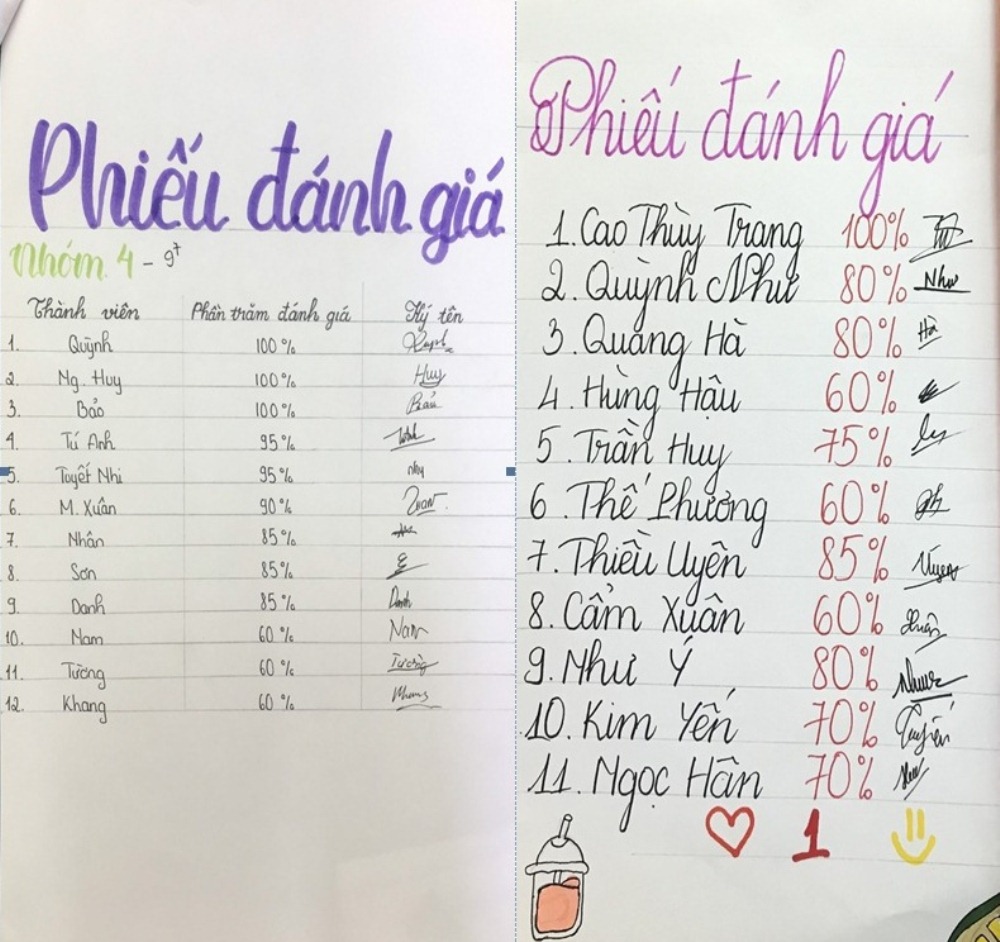 Phiếu đánh giá
Nhóm 4 - 9⁷
Thành viên Phần trăm đánh giá Ký tên
1. Quỳnh 100%
2. Ng. Huy 100% Huy
3. Bảo 100% Bảo
4. Tú Anh 95%
5. Tuyết Nhi 95% nhy
6. M. Xuân 90% Xuan
7. Nhân 85%
8. Sơn 85%
9. Danh 85% Danh
10. Nam 60% Nam
11. Tường 60% Tường
12. Khang 60% Khang
Phiếu đánh giá
1. Cao Thùy Trang 100%
2. Quỳnh Như 80% Như
3. Quang Hà 80% Hà
4. Hùng Hậu 60%
5. Trần Huy 75%
6. Thế Phương 60%
7. Thiều Uyên 85% Uyên
8. Cẩm Xuân 60% Xuân
9. Như Ý 80%
10. Kim Yến 70%
11. Ngọc Hân 70%
1